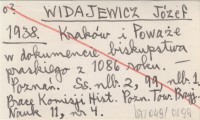 WIDAJEWICZ Józef
1938. Kraków i Poważe
w dokumencie biskupstwa
praskiego z 1086 roku.
Poznań. Ss. nlb. 2, 99, nlb. 1.
Prace Komisji Hist. Pozn. Tow. Przyj.
Nauk 11, nr 4.